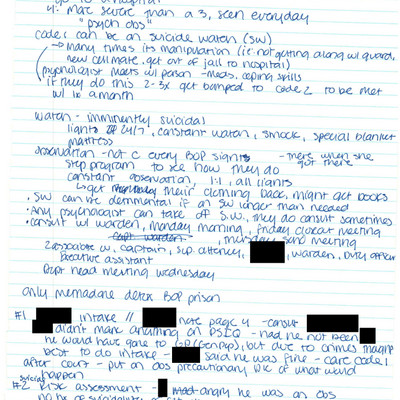 go to a hospital
4: More severe than a 3, seen everyday
"psych obs"
code 1 can be on suicide watch (SW)
many times its manipulation (i.e. not getting along w/ guard,
new cell mate, get out of jail to hospital)
psychologist meets w/ person - meds, coping skills
if they do this 2-3x get bumped to code 2 to be met
w/ 1x a month
watch - imminently suicidal
lights 24/7, constant watch, smock, special blanket
mattress
observation - not @ every BOP sights - there when she
got there
step program to see how they do
constant observation, 1:1, all lights
get their clothing back, might get books
· SW can be detrimental if on SW longer than needed
· Any psychologist can take off S.W., they do consult sometimes
· consult w/ warden, monday morning, friday closeout meeting
, thursday send meeting
2 associate w, captain, sup. attorney, , warden, duty officer
executive assistant
Dept head meeting wednesday
only memadane detox BOP prison
#1 intake // note page 4 - consult
didn't mark anything on PSIQ - had he not been
he would have gone to GP (Gen pop), but due to crimes
best to do intake - said he was fine - care code 1
after court - put on obs precautionary b/c of what would
happen
#2 suicide risk assessment - angry he was on obs